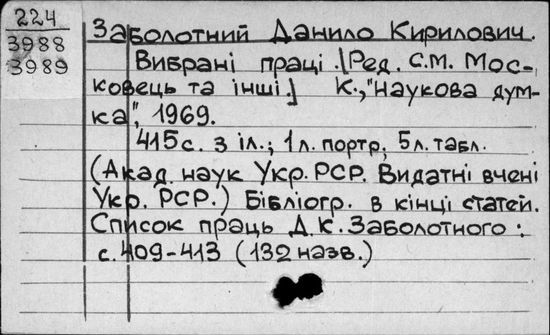 224
3988
3989
Заболотний Данило Кирилович.
Вибрані праці. [Ред. С.М. Мос-
ковець та інші] К., "Наукова дум-
ка", 1969.
415 с. з іл.; 1 л. портр, 5 л. табл.
(Акад. наук Укр. РСР. Видатні вчені
Укр. РСР.) Бібліогр. в кінці статей.
Список праць Д.К. Заболотного:
с. 409-413 (132 назв.)